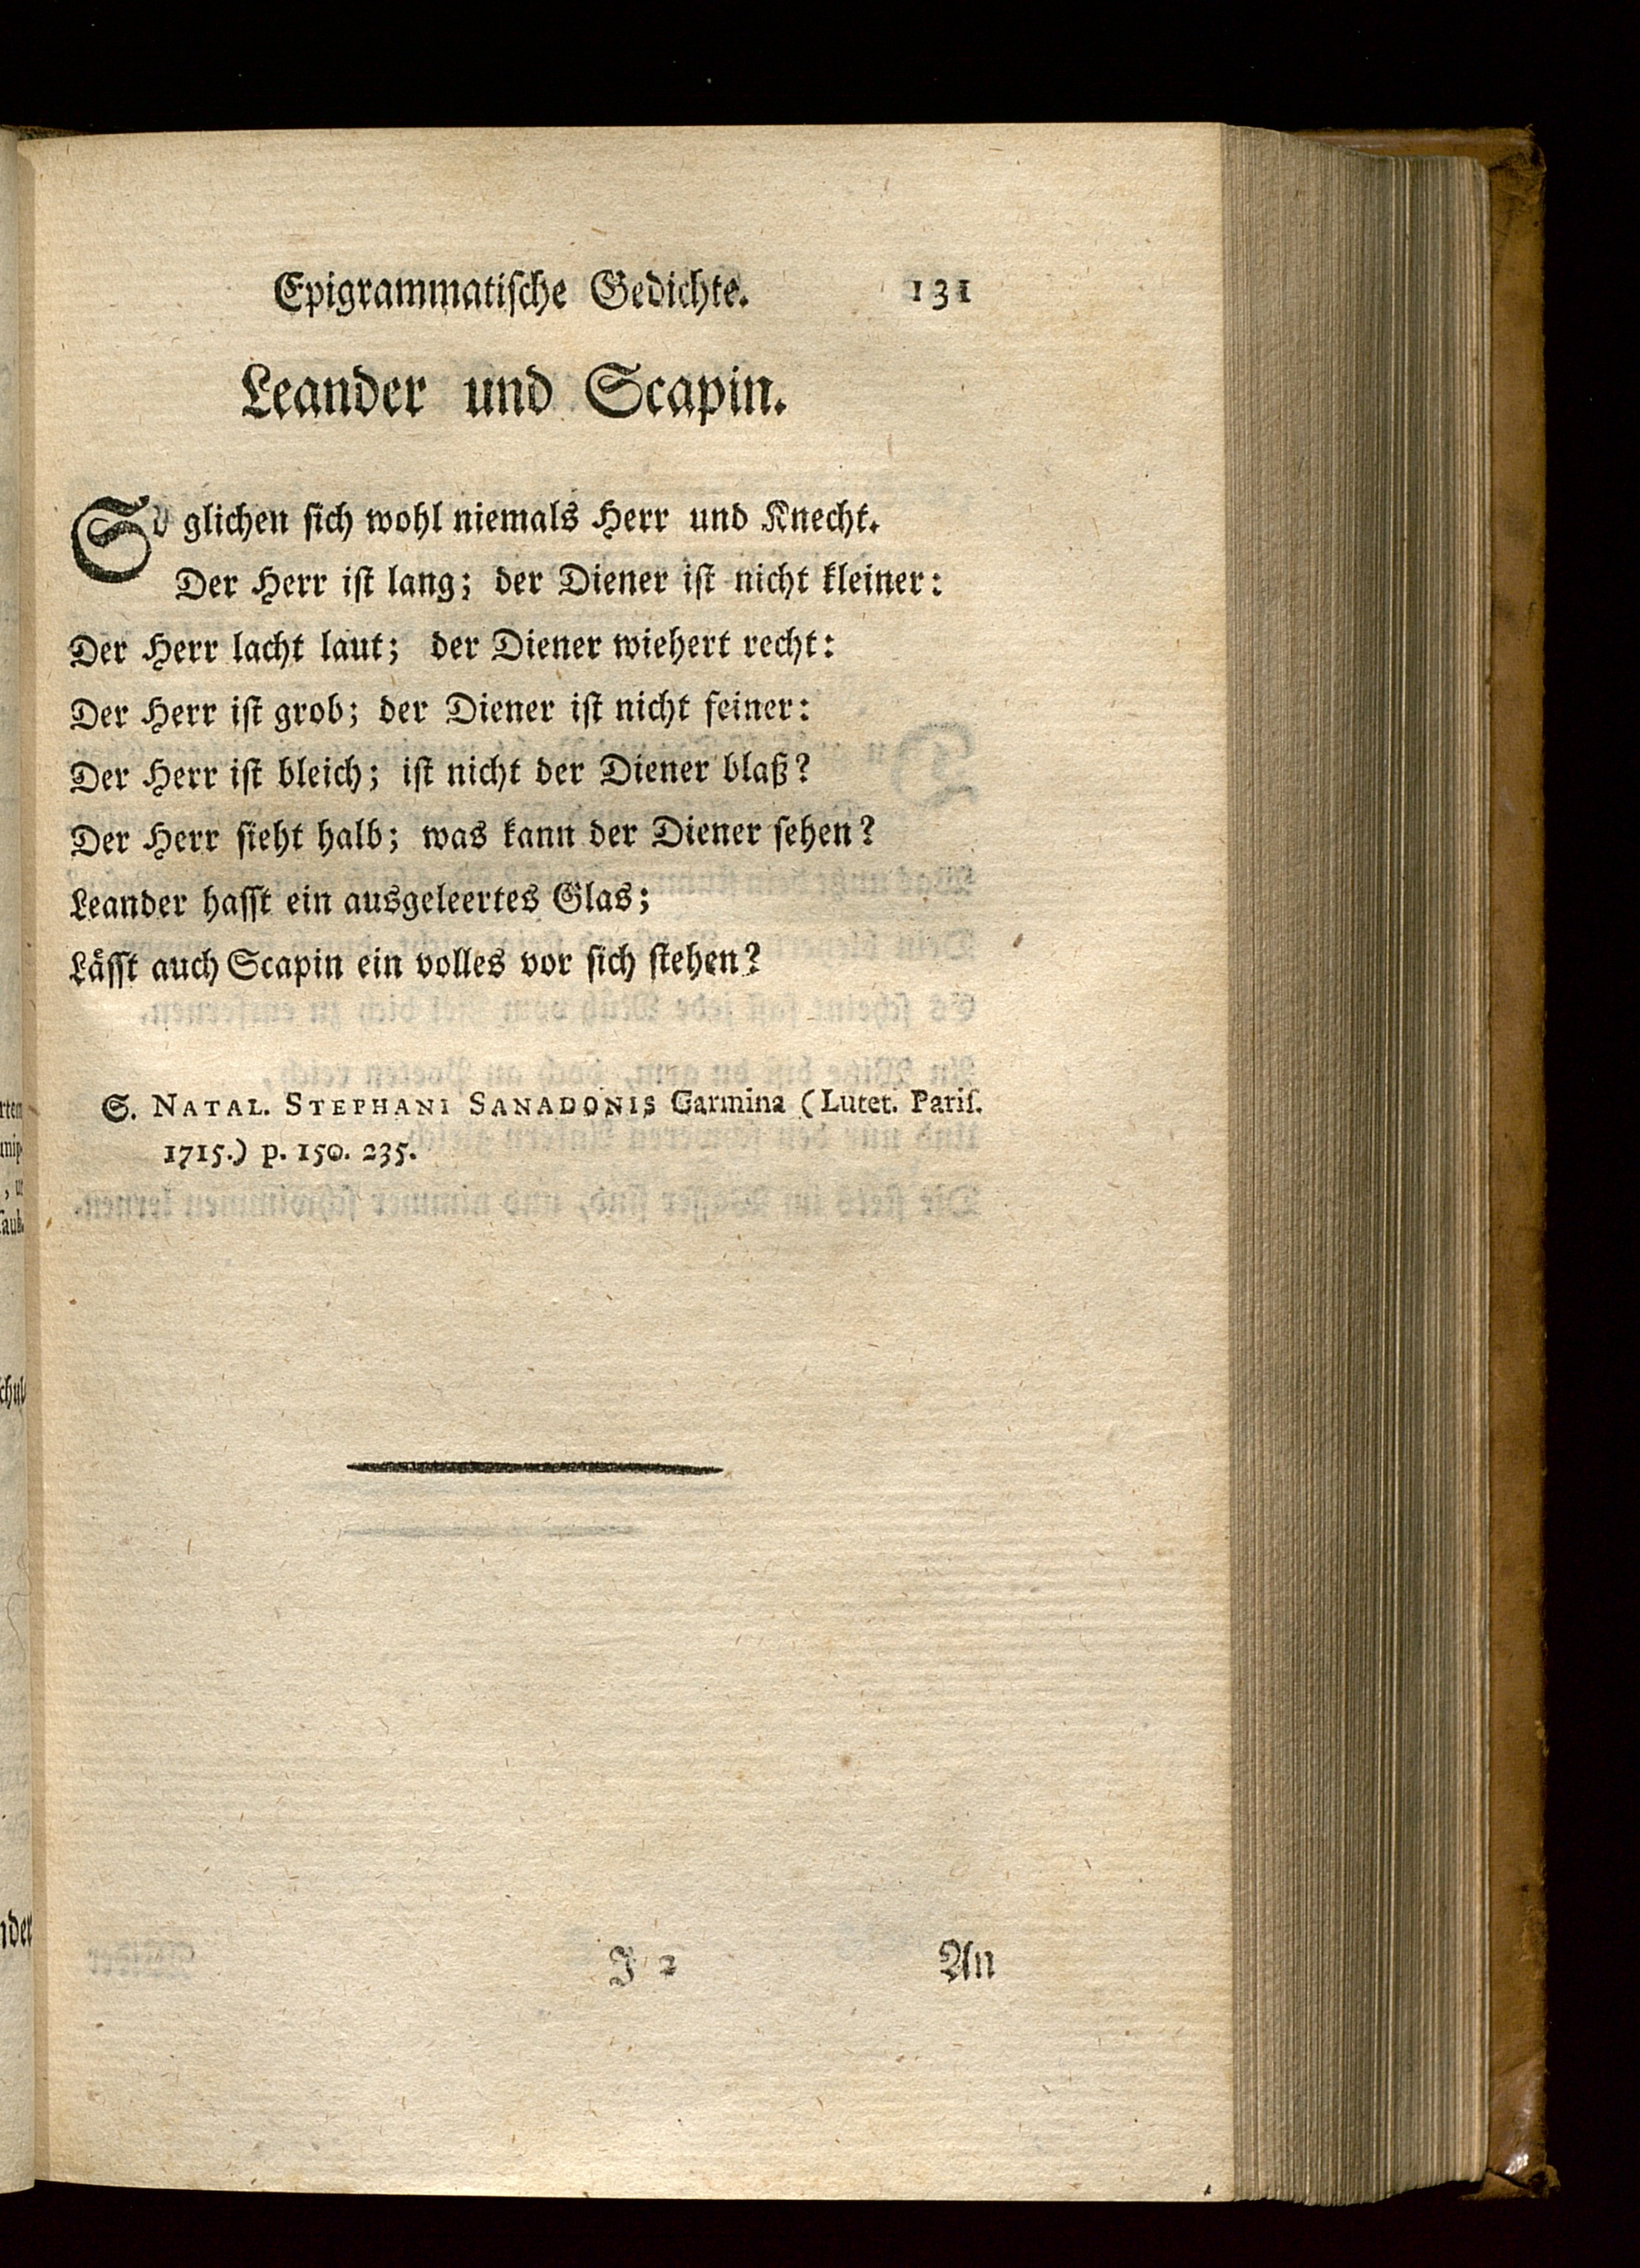 Epigrammatiſche Gedichte. 131
Leander und Scapin.
So glichen ſich wohl niemals Herr und Knecht.
Der Herr iſt lang; der Diener iſt nicht kleiner:
Der Herr lacht laut; der Diener wiehert recht:
Der Herr iſt grob; der Diener iſt nicht feiner:
Der Herr iſt bleich; iſt nicht der Diener blaß?
Der Herr ſieht halb; was kann der Diener ſehen?
Leander haſſt ein ausgeleertes Glas;
Läſſt auch Scapin ein volles vor ſich ſtehen?
S. NATAL. STEPHANI SANADONIS Carmina (Lutet. Pariſ.
1715.) p. 150. 235.
J 2 An